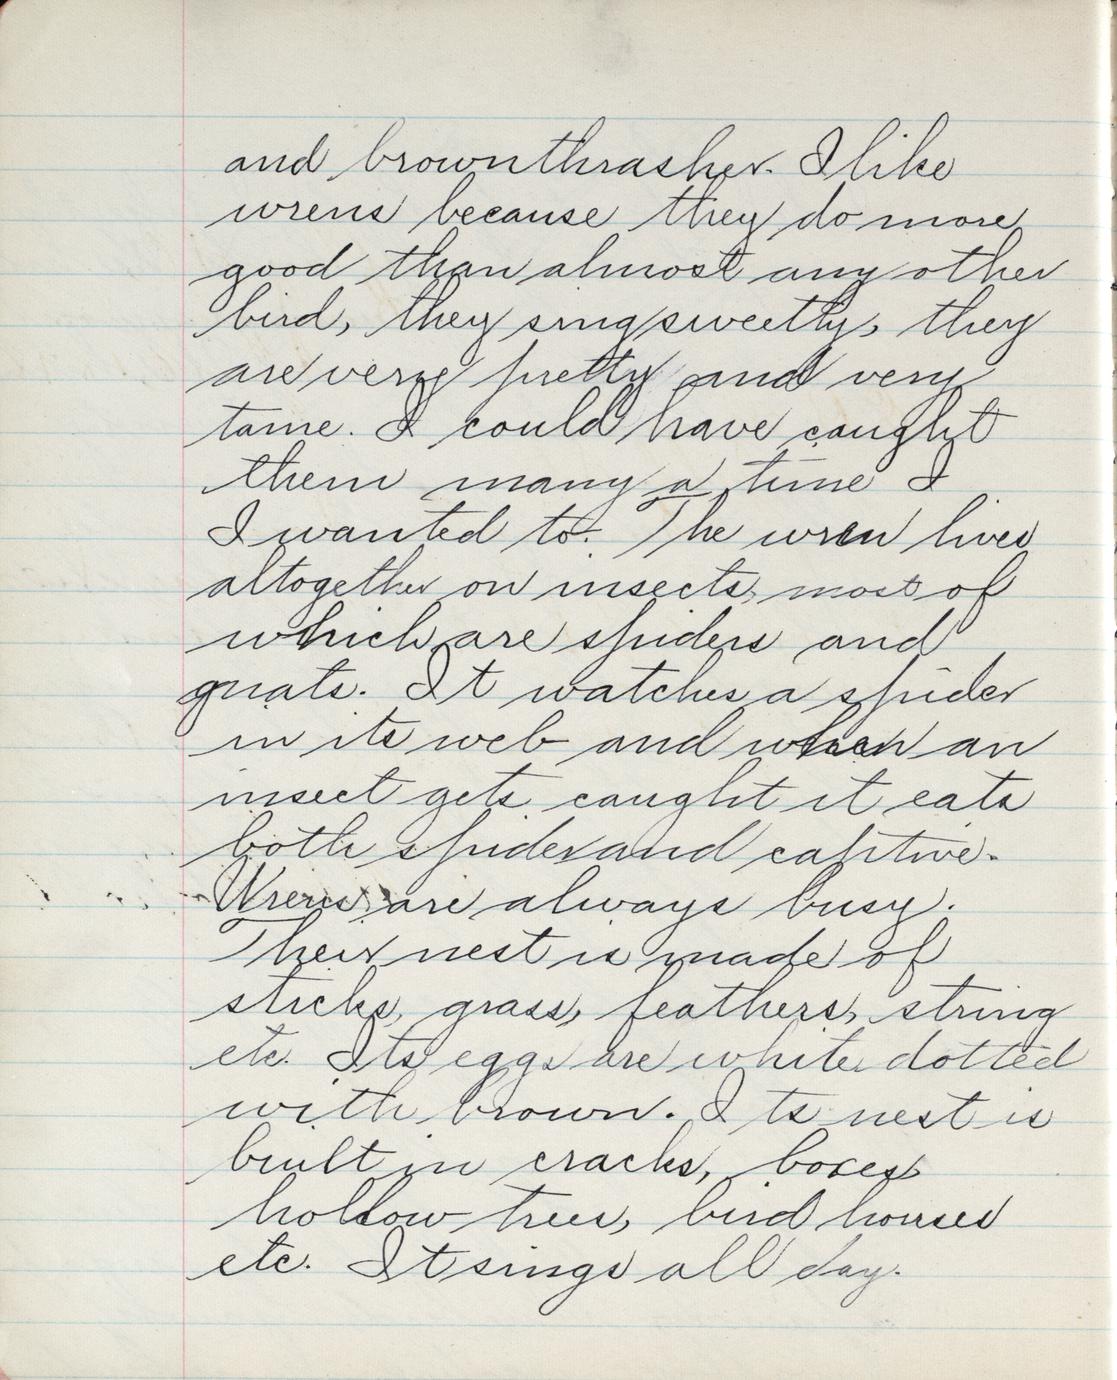 and brown thrasher. I like
wrens because they do more
good than almost any other
bird, they sing sweetly, they
are very pretty and very
tame. I could have caught
them many a time I
I wanted to. The wren lives
altogether on insects, most of
which are spiders and
gnats. It watches a spider
in its web and when an
insect gets caught it eats
both spider and captive.
Wrens are always busy.
Their nest is made of
sticks, grass, feathers, string
etc. Its eggs are white dotted
with brown. Its nest is
built in cracks, boxes
hollow trees, bird houses
etc. It sings all day.